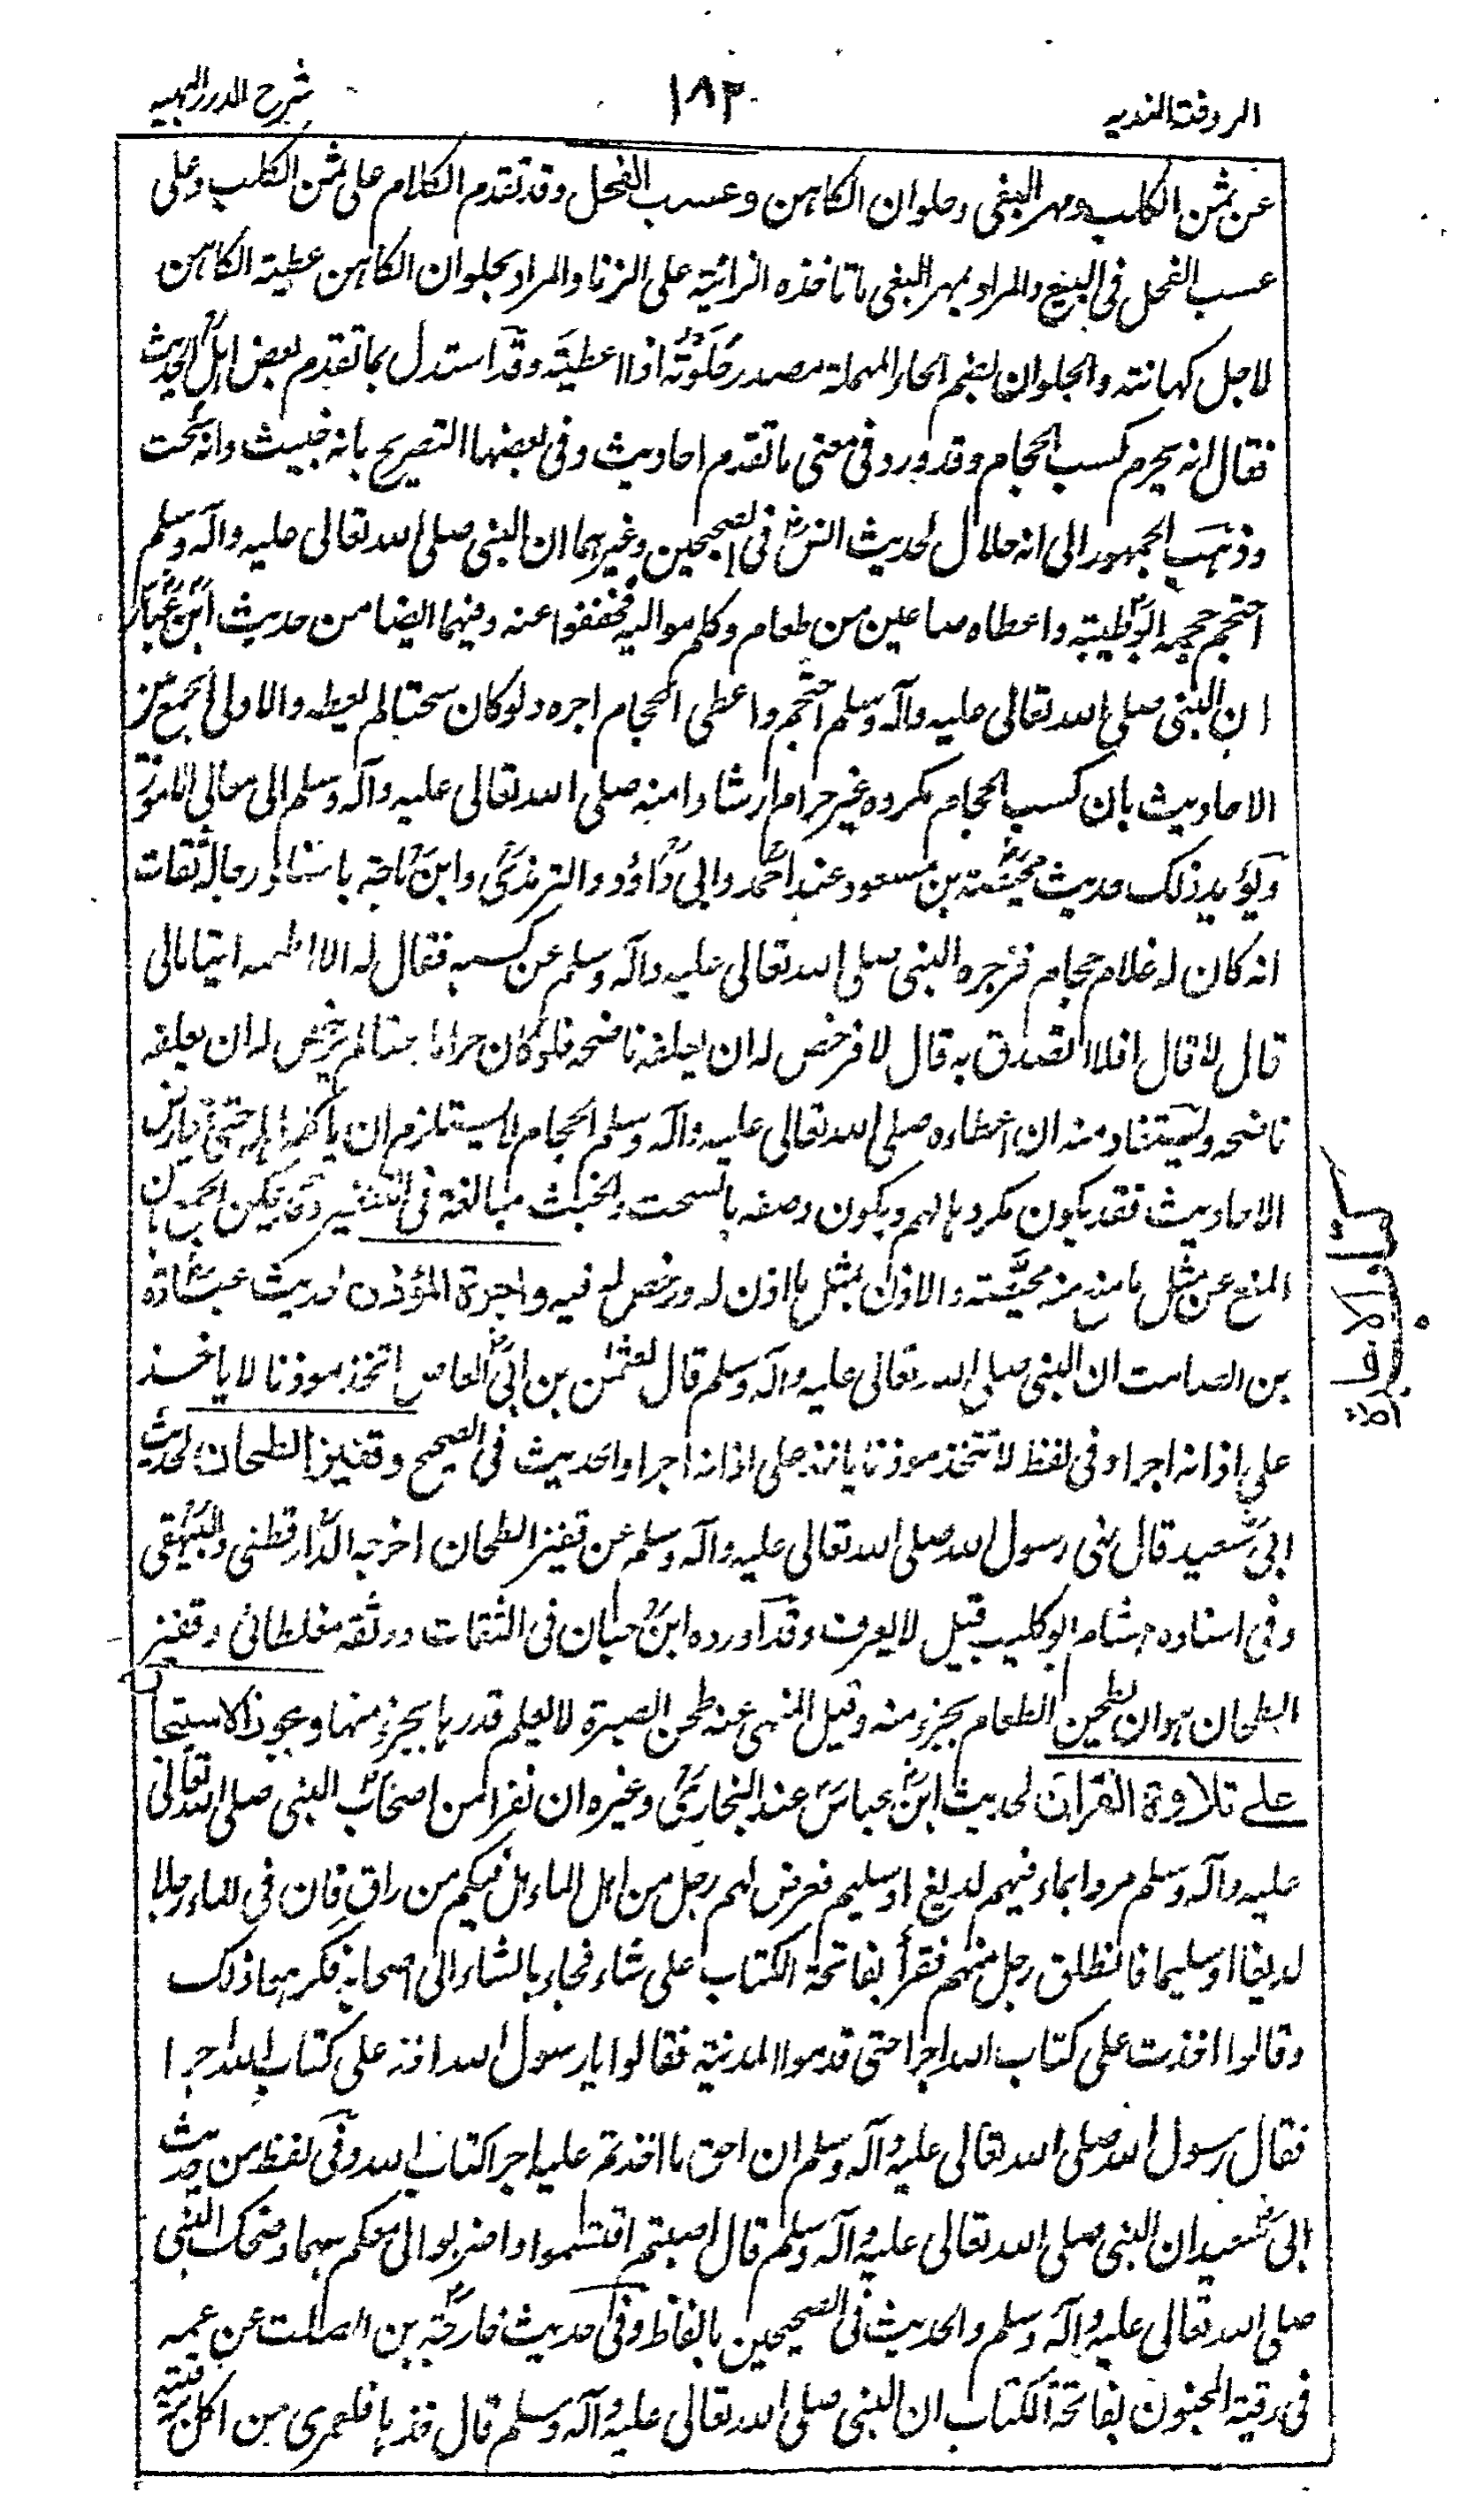 الروضة الندیه
۱۸۲
شرح الدرر البهیه
عن ثمن الكلب ومهر البغی وحلوان الكاهن وعسب الفحل وقد تقدم الكلام علی ثمن الكلب وعلی
عسب الفحل فی البیع والمراد بمهر البغی ما تاخذه الزانیة علی الزنا والمراد بحلوان الكاهن عطیة الكاهن
لاجل كهانته والحلوان بضم الحاء المهملة مصدر حَلَوْتُه اذا اعطیته وقد استدل بما تقدم بعض اهل الحدیث
فقال انه یحرم كسب الحجام وقد ورد فی معنی ما تقدم احادیث وفی بعضها التصریح بانه خبیث وانه سحت
وذهب الجمهور الی انه حلال لحدیث انس فی الصحیحین وغیرهما ان النبی صلی الله تعالی علیه وآله وسلم
احتجم حجمه ابو طیبة واعطاه صاعین من طعام وكلم موالیه فخففوا عنه وفیهما ایضا من حدیث ابن عباس
ان النبی صلی الله تعالی علیه وآله وسلم احتجم واعطی الحجام اجره ولو كان سحتا لم یعطه والاولی الجمع بین
الاحادیث بان كسب الحجام مكروه غیر حرام ارشادا منه صلی الله تعالی علیه وآله وسلم الی معالی الامور
ویؤید ذلك حدیث محیصة بن مسعود عند احمد وابی داؤد والترمذی وابن ماجة باسناد رجاله ثقات
انه كان له غلام حجام فزجره النبی صلی الله تعالی علیه وآله وسلم عن كسبه فقال له الا اطعمه ایتاما لی
قال لا قال افلا اتصدق به قال لا فرخص له ان یعلفه ناضحه فلو كان حراما بحتا لم یرخص له ان یعلفه
ناضحه ویستفاد منه ان اعطاءه صلی الله تعالی علیه وآله وسلم الحجام لا یستلزم ان یاكله اهله حتی تعارض
الاحادیث فقد یكون مكروها لهم ویكون وصفه بالسحت والخبث مبالغة فی التنفیر وقد یمكن الجمع بان
المنع عن مثل ما منع منه محیصة والاذن بمثل ما اذن له ورخص له فیه واجرة المؤذن لحدیث عبادة
بن الصامت ان النبی صلی الله تعالی علیه وآله وسلم قال لعثمن بن ابی العاص اتخذ موذنا لا یاخذ
علی اذانه اجرا وفی لفظ لا تتخذ موذنا یاخذ علی اذانه اجرا والحدیث فی الصحیح وقفیز الطحان لحدیث
ابی سعید قال نهی رسول الله صلی الله تعالی علیه وآله وسلم عن قفیز الطحان اخرجه الدارقطنی والبیهقی
وفی اسناده هشام ابو كلیب قیل لا یعرف وقد اورده ابن حبان فی الثقات ووثقه مغلطائی وقفیز
الطحان هو ان یطحن الطعام بجزء منه وقیل المنهی عنه طحن الصبرة لا یعلم قدرها بجزء منها ویجوز الاستیجا
علے تلاوة القرآن لحدیث ابن عباس عند البخاری وغیره ان نفرا من اصحاب النبی صلی الله تعالی
علیه وآله وسلم مروا بماء فیهم لدیغ او سلیم فعرض لهم رجل من اهل الماء هل فیكم من راق فان فی الماء رجلا
لدیغا او سلیما فانطلق رجل منهم فقرأ بفاتحة الكتاب علی شاء فجاء بالشاء الی اصحابه فكرهوا ذلك
وقالوا اخذت علی كتاب الله اجرا حتی قدموا المدینة فقالوا یا رسول الله اخذ علی كتاب الله اجرا
فقال رسول الله صلی الله تعالی علیه وآله وسلم ان احق ما اخذتم علیه اجرا كتاب الله وفی لفظ من حدیث
ابی سعید ان النبی صلی الله تعالی علیه وآله وسلم قال اصبتم اقتسموا واضربوا لی معكم سهما وضحك النبی
صلی الله تعالی علیه وآله وسلم والحدیث فی الصحیحین بالفاظ وفی حدیث خارجة بن الصلت عن عمه
فی رقیة المجنون بفاتحة الكتاب ان النبی صلی الله تعالی علیه وآله وسلم قال خذها فلعمری من اكل برقیة
كتاب الاجارة